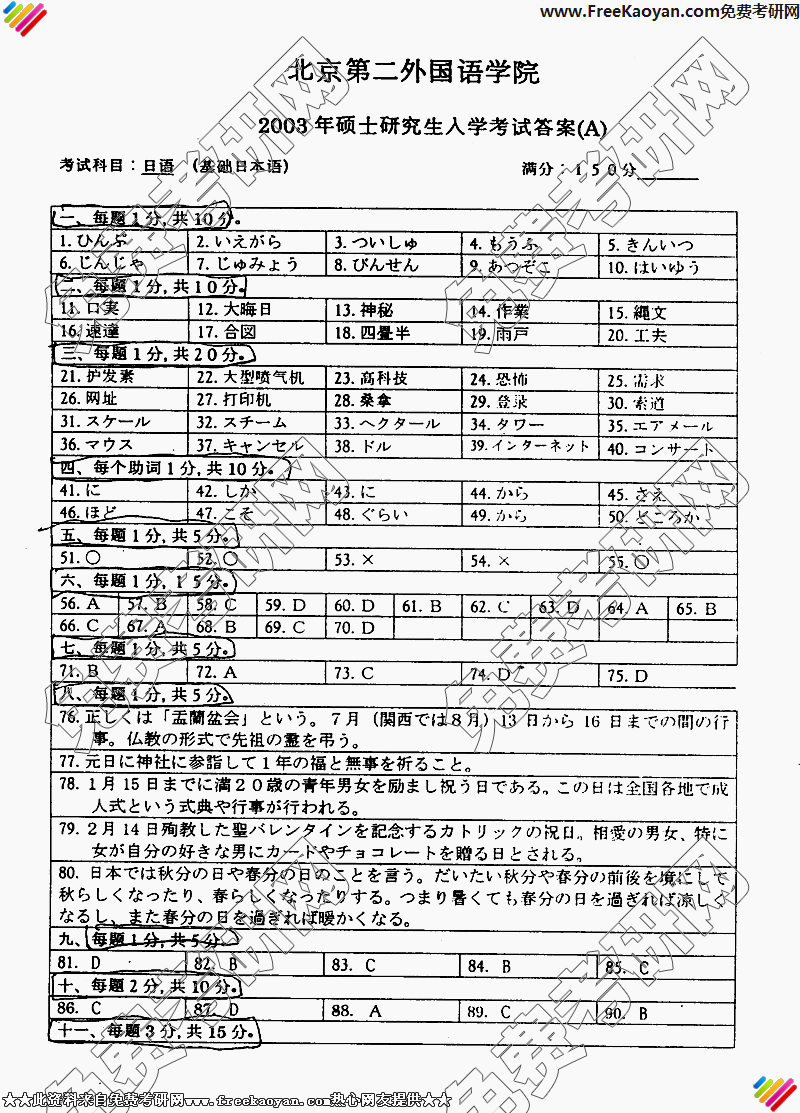 www.FreeKaoyan.com免费考研网
北京第二外国语学院
2003年硕士研究生入学考试答案(A)
考试科目：日语 （基础日本语） 满分：150分
一、每题1分,共10分。
1. ひんぷ 2. いえがら 3. ついしゅ 4. もうふ 5. きんいつ
6. じんじゃ 7. じゅみょう 8. びんせん 9. あつぞこ 10. はいゆう
二、每题1分,共10分。
11. 口実 12. 大晦日 13. 神秘 14. 作業 15. 縄文
16. 速達 17. 合図 18. 四畳半 19. 雨戸 20. 工夫
三、每题1分,共20分。
21. 护发素 22. 大型喷气机 23. 高科技 24. 恐怖 25. 需求
26. 网址 27. 打印机 28. 桑拿 29. 登录 30. 索道
31. スケール 32. スチーム 33. ヘクタール 34. タワー 35. エアメール
36. マウス 37. キャンセル 38. ドル 39. インターネット 40. コンサート
四、每个助词1分,共10分。
41. に 42. しか 43. に 44. から 45. さえ
46. ほど 47. こそ 48. ぐらい 49. から 50. どころか
五、每题1分,共5分。
51. ○ 52. ○ 53. × 54. × 55. ○
六、每题1分,15分。
56. A 57. B 58. C 59. D 60. D 61. B 62. C 63. D 64. A 65. B
66. C 67. A 68. B 69. C 70. D
七、每题1分,共5分。
71. B 72. A 73. C 74. D 75. D
八、每题1分,共5分。
76. 正しくは「盂蘭盆会」という。7月（関西では8月）13日から16日までの間の行
事。仏教の形式で先祖の霊を弔う。
77. 元日に神社に参詣して1年の福と無事を祈ること。
78. 1月15日までに満20歳の青年男女を励まし祝う日である。この日は全国各地で成
人式という式典や行事が行われる。
79. 2月14日殉教した聖バレンタインを記念するカトリックの祝日。相愛の男女、特に
女が自分の好きな男にカードやチョコレートを贈る日とされる。
80. 日本では秋分の日や春分の日のことを言う。だいたい秋分や春分の前後を境にして
秋らしくなったり、春らしくなったりする。つまり暑くても春分の日を過ぎれば涼しく
なるし、また春分の日を過ぎれば暖かくなる。
九、每题1分,共5分。
81. D 82. B 83. C 84. B 85. C
十、每题2分,共10分。
86. C 87. D 88. A 89. C 90. B
十一、每题3分,共15分。
免费考研网
★★此资料来自免费考研网www.freekaoyan.com热心网友提供★★